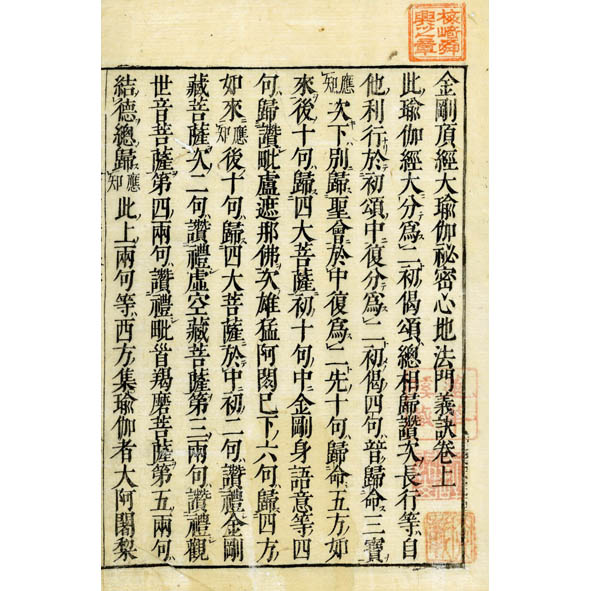 金剛頂經大瑜伽祕密心地法門義訣卷上
此瑜伽經大分為二初偈頌總相歸讚次長行等自
他利行於初頌中復分為二初偈四句普歸命三寶
應知次下別歸聖會於中復為二先十句歸命五方如
來後十句歸四大菩薩初十句中金剛身語意等四
句歸讚毗盧遮那佛次雄猛阿閦已下六句歸四方
如來應知後十句歸四大菩薩於中初二句讚禮金剛
藏菩薩次二句讚禮虛空藏菩薩第三兩句讚禮觀
世音菩薩第四兩句讚禮毗首羯磨菩薩第五兩句
結德總歸應知此上兩句等西方集瑜伽者大阿闍梨